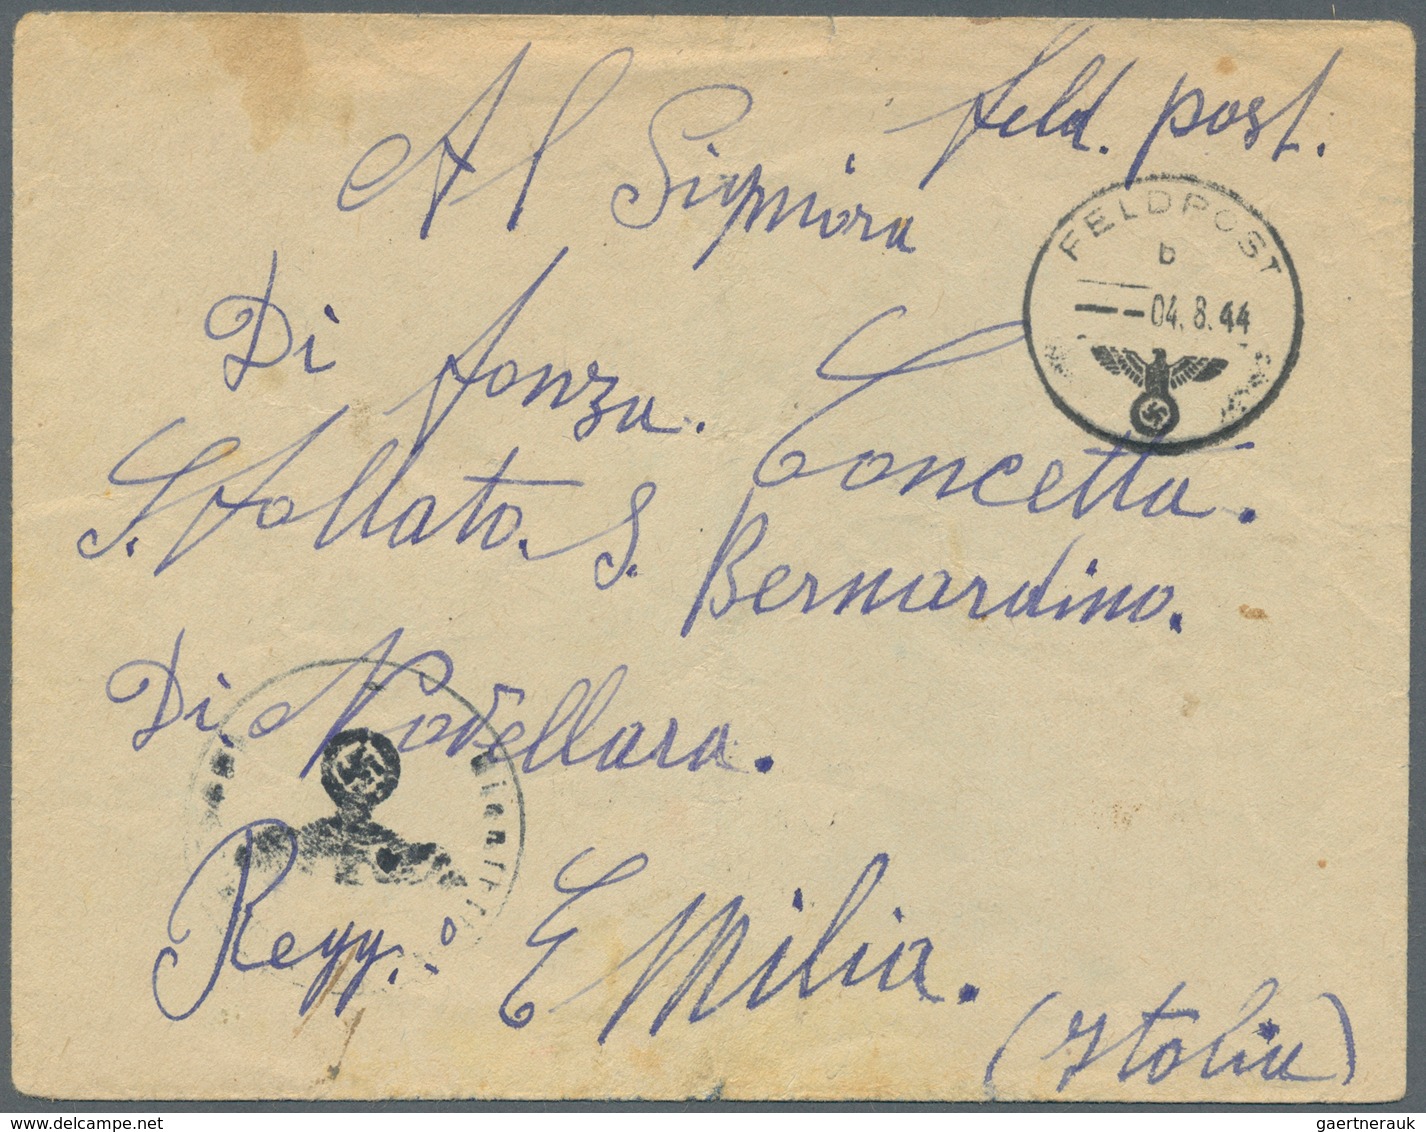 feld. post.
Al Signiora
FELDPOST
b
04.8.44
Di Fonza. Concetta.
Sfollato. S. Bernardino.
Di Novellara.
Regg. Emilia.
(Italia)
gaertnerauk
www.delcampe.net